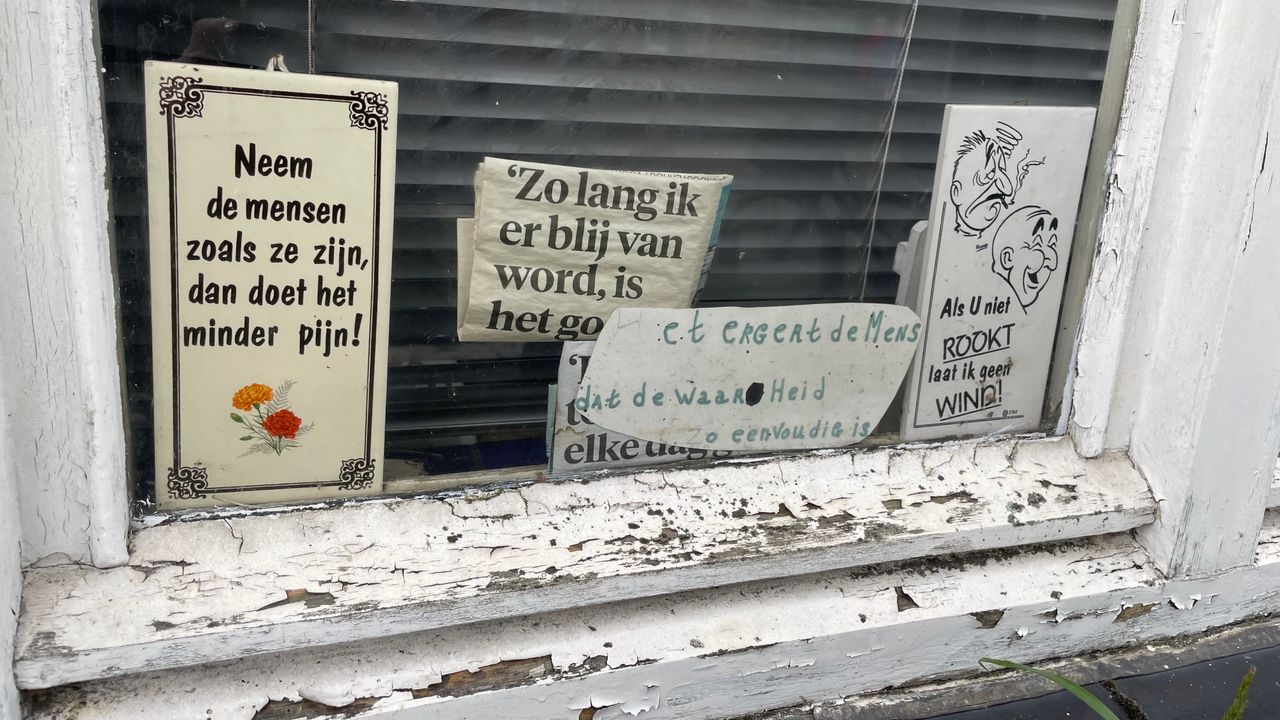 Neem
de mensen
zoals ze zijn,
dan doet het
minder pijn!
‘Zo lang ik
er blij van
word, is
het go
et ergert de Mens
dat de waarheid
zo eenvoudig is
elke dag
Als U niet
ROOKT
laat ik geen
WIND!